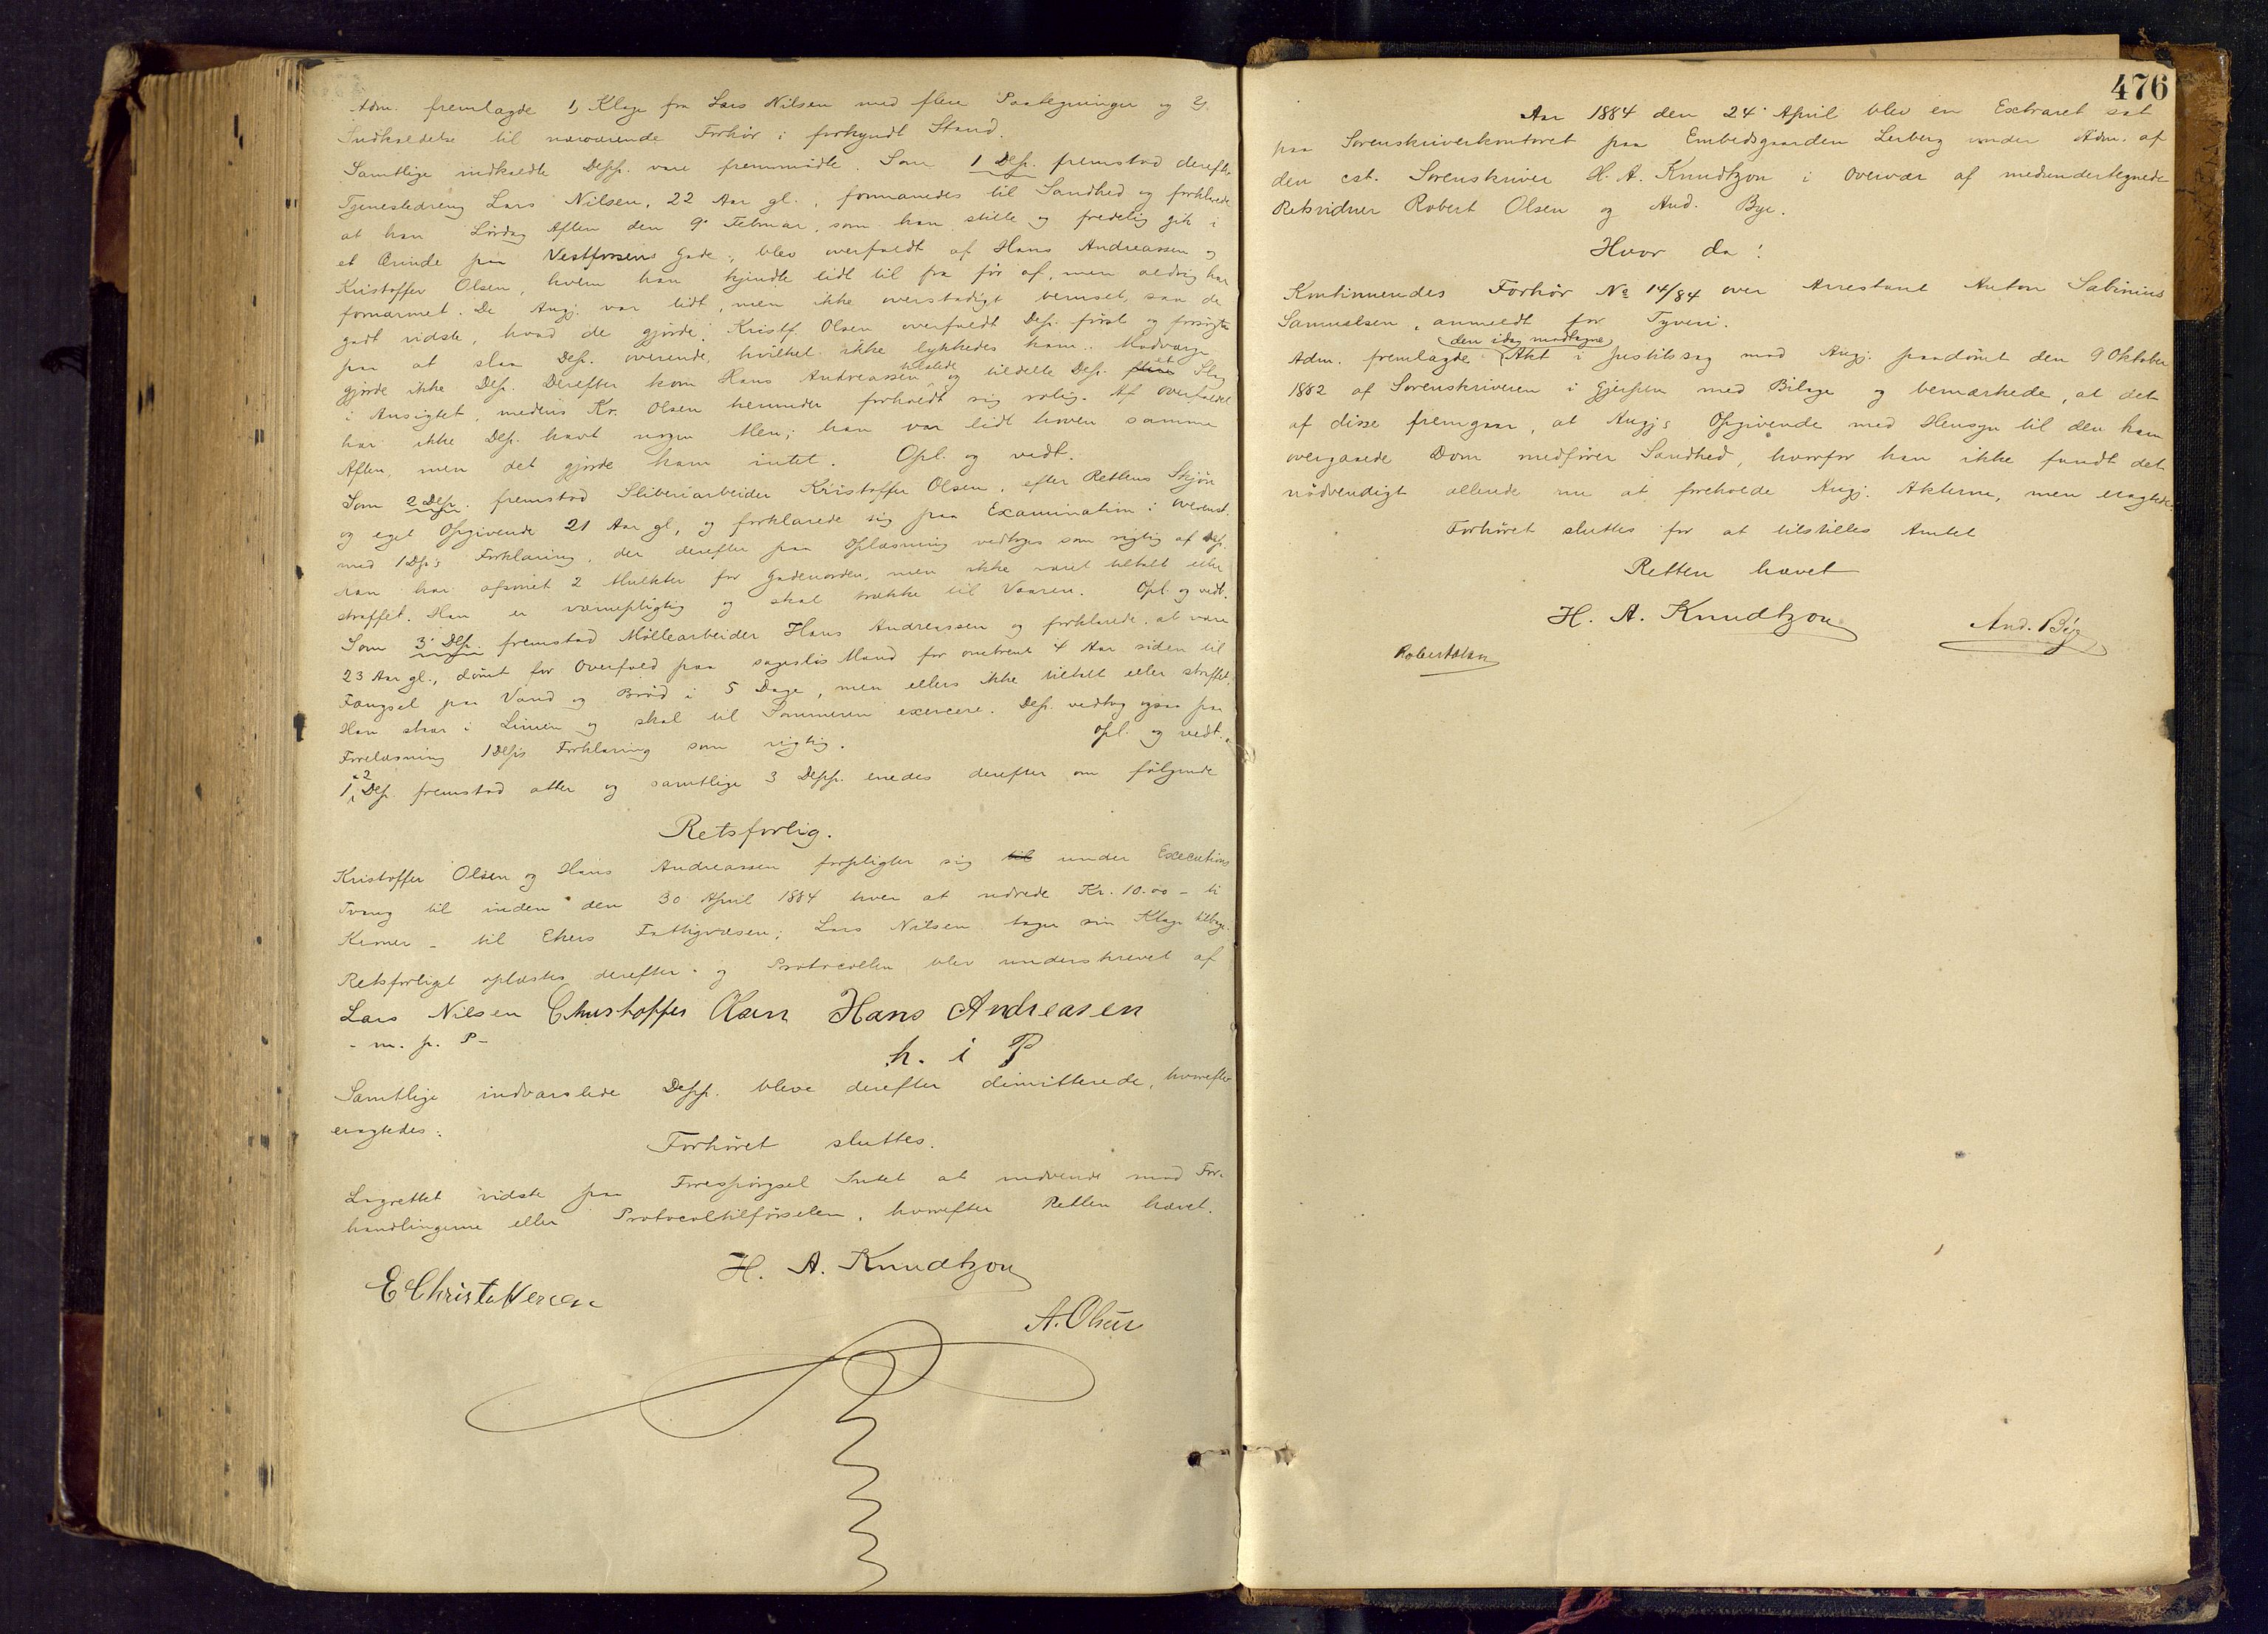 Adm. fremlagde 1, Klage fra Lars Nilsen med flere Paategninger og 2,
Indkaldelse til nærværende Forhør i forkyndt Stand.
Samtlige indkaldte Depp. vare fremmødte. Som 1 Dep. fremstod derefter
Tjenestedreng Lars Nilsen, 22 Aar gl., formanedes til Sandhed og forklarede
at han Lørdag Aften den 9' Februar, som han stille og fredelig gik i
et Ærinde paa Vestfossens Gade, blev overfaldt af Hans Andreassen og
Kristoffer Olsen, hvem han kjendte lidt til fra før af, men aldrig har
fornærmet. De Angj. var lidt, men ikke overstadigt beruset, saa de
godt vidste, hvad de gjorde. Kristf. Olsen overfaldt Dep. først og forsøgte
paa at slaa Dep. overende, hvilket ikke lykkedes ham. Modværge
gjorde ikke Dep. Derefter kom Hans Andreassen tilstede og tildelte Dep. et Slag
i Ansigtet, medens Kr. Olsen herunder forholdt sig rolig. Af Overfaldet
har ikke Dep. havt nogen Men; han var lidt hoven samme
Aften, men det gjorde ham intet. Opl. og vedt.
Som 2 Dep. fremstod Sliberiarbeider Kristoffer Olsen, efter Rettens Skjøn
og eget Opgivende 21 Aar gl, og forklarede sig paa Examination i Overenst.
med 1 Dep's Forklaring, der derefter paa Oplæsning vedtoges som rigtig af Dep.
han har afsonet 2 Mulkter for Gadeuorden, men ikke været tiltalt eller
straffet. Han er værnepligtig og skal trække til Vaaren. Opl. og vedt.
Som 3' Dep. fremstod Møllearbeider Hans Andreassen og forklarede at være
23 Aar gl., dømt for Overfald paa sagesløs Mand for omtrent 4 Aar siden til
Fængsel paa Vand og Brød i 5 Dage, men ellers ikke tiltalt eller straffet.
Han staar i Linien og skal til Sommeren exercere. Dep. vedtog ogsaa paa
Forelæsning 1 Dep's Forklaring som rigtig. Opl. og vedt.
1 Dep. fremstod atter og samtlige 3 Depp. enedes derefter om følgende
Retsforlig.
Kristoffer Olsen og Hans Andreassen forpligter sig til under Executions
Tvang til inden den 30 April 1884 hver at udrede Kr. 10.00 - ti
Kroner - til Ekers Fattigvæsen; Lars Nilsen tager sin Klage tilbage.
Retsforliget oplæstes derefter og Protocollen blev underskrevet af
Lars Nilsen Christoffer Olsen Hans Andreasen
- m. p. P - h. i P
Samtlige indvarslede Depp. bleve derefter dimitterede, hvorefter
eragtedes:
Forhøret sluttes.
Lagrettet vidste paa Forespørgsel Intet at indvende mod For-
handlingerne eller Protocoltilførselen, hvorefter Retten hævet.
H. A. Knudtzon
E Christoffersen
A. Olsen
476
Aar 1884 den 24' April blev en Extraret sat
paa Sorenskriverkontoret paa Embedsgaarden Lerberg under Adm. af
den cst. Sorenskriver H. A. Knudtzon i Overvær af medundertegnede
Retsvidner Robert Olsen og And. Bye.
Hvor da:
Kontinueredes Forhør No 14/84 over Arrestant Anton Sabinius
Samuelsen, anmeldt for Tyveri.
den idag modtagne
Adm. fremlagde Akt i Justitssag mod Angj. paadømt den 9 Oktober
1882 af Sorenskriveren i Gjerpen med Bilage og bemærkede, at det
af disse fremgaar, at Angj's Opgivende med Hensyn til den ham
overgaaede Dom medfører Sandhed, hvorfor han ikke fandt det
nødvendigt allerede nu at foreholde Angj. Akterne, men eragtede:
Forhøret sluttes for at tilstilles Amtet
Retten hævet
H. A. Knudtzon
And. Bye
Robert Olsen